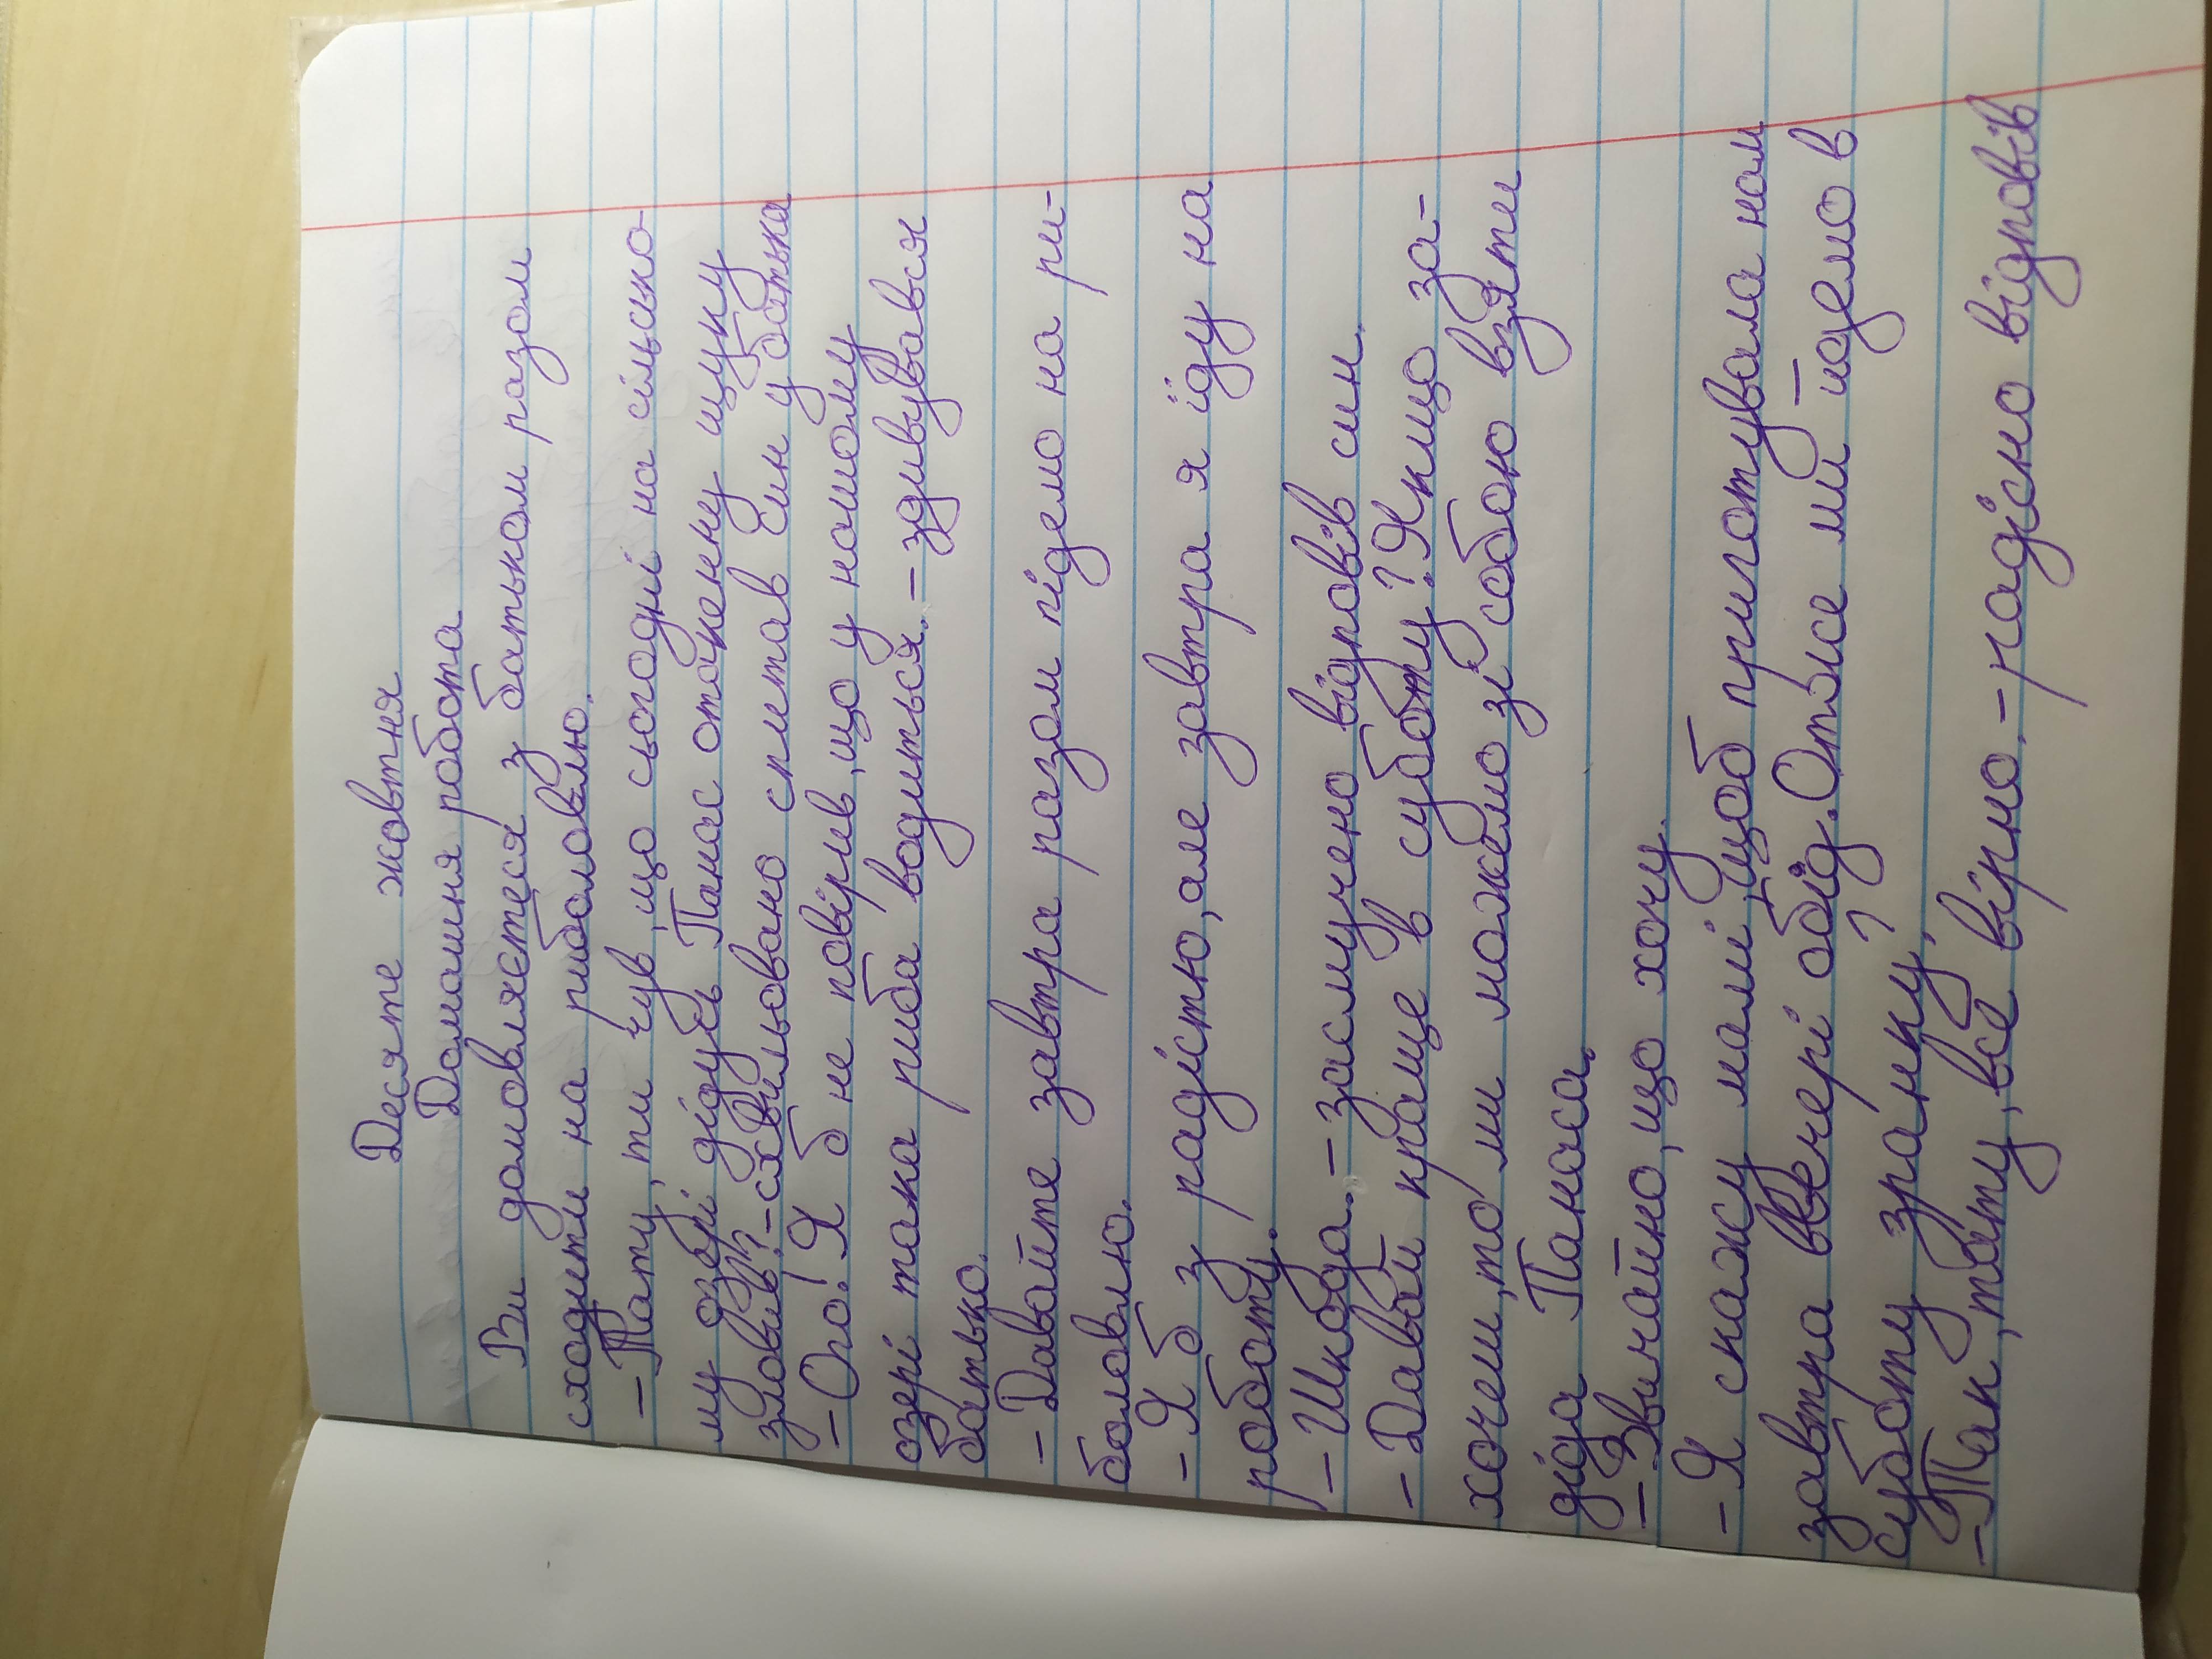 Десяте жовтня
Домашня робота
Ви домовляєтеся з батьком разом
сходити на риболовлю.
- Тату, ти чув, що сьогодні на сільсько-
му озері дідусь Панас отакенну щуку
зловив? - схвильовано спитав син у батька
- Ого! Я б не повірив, що у нашому
озері така риба водиться. - здивувався
батько.
- Давайте завтра разом підемо на ри-
боловлю.
- Я б з радістю, але завтра я іду на
роботу.
- Шкода. - засмучено відповів син.
- Давай краще в суботу? Якщо за-
хочеш, то ми можемо зі собою взяти
діда Панаса.
- Звичайно, що хочу.
- Я скажу мамі, щоб приготувала нам
завтра ввечері обід. Отже ми йдемо в
суботу зранку?
- Так, тату, все вірно. - радісно відповів